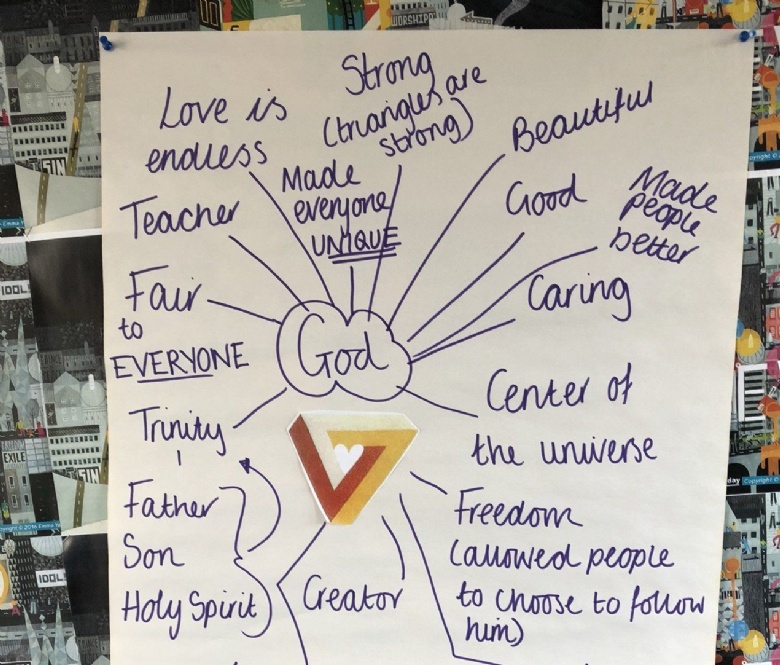 Strong
(triangles are
strong)
Love is
endless
Beautiful
Made
everyone
UNIQUE
Good
Made
people
better
Teacher
Caring
Fair
to
EVERYONE
God
Center of
the universe
Trinity
Father
Son
Holy Spirit
Creator
Freedom
(allowed people
to choose to follow
him)
WORSHIP
SIN
IDOL
EXILE
SIN
IDOL